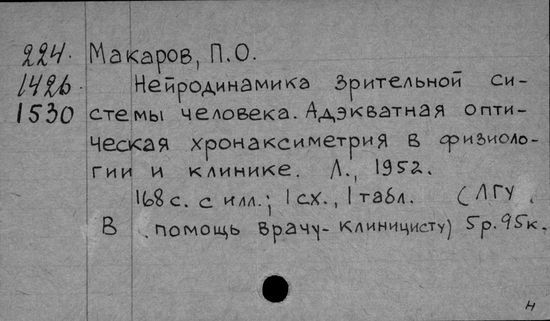 224. Макаров, П.О.
1426 Нейродинамика зрительной си-
1530 стемы человека. Адэкватная опти-
ческая хронаксиметрия в физиоло-
гии и клинике. Л., 1952.
168 с. с илл.; 1 сх., 1 табл. (ЛГУ.
В помощь врачу-клиницисту) 5р.95к.
н